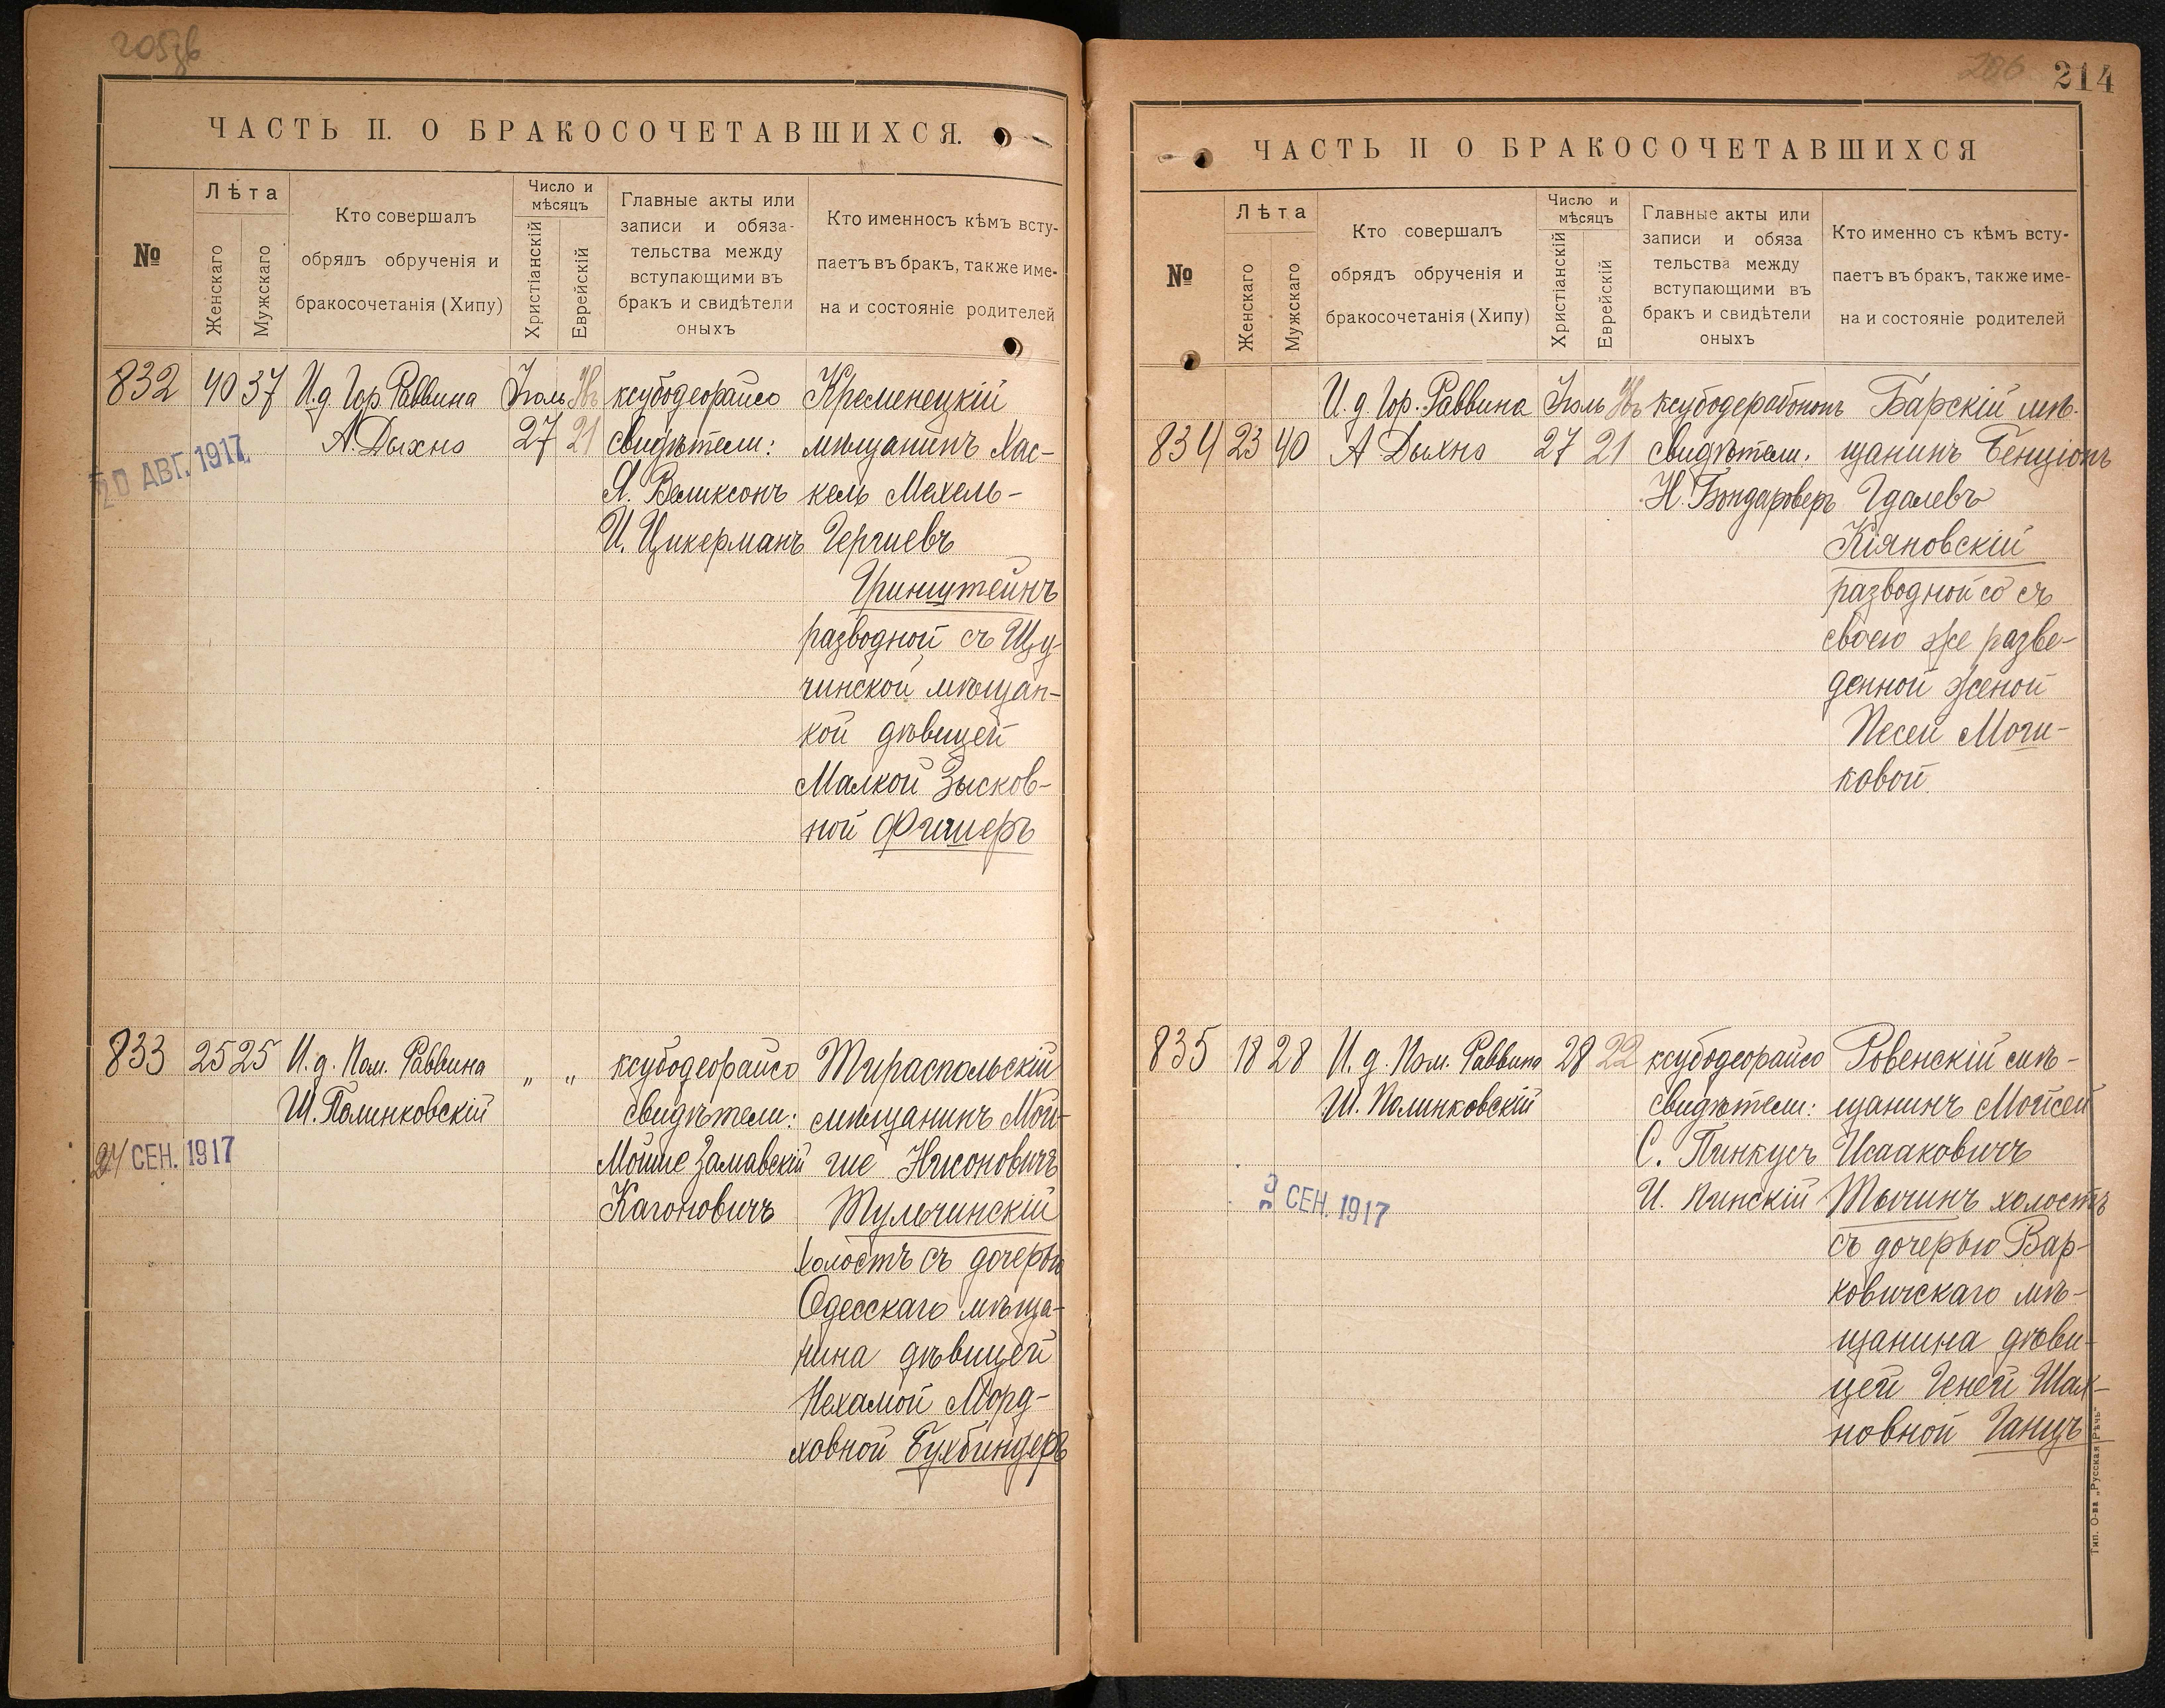 ЧАСТЬ II. О БРАКОСОЧЕТАВШИХСЯ.
№
Лѣта
Женскаго
Мужскаго
Кто совершалъ
обрядъ обрученія и
бракосочетанія (Хипу)
Число и
мѣсяцъ
Христіанскій
Еврейскій
Главные акты или
записи и обяза-
тельства между
вступающими въ
бракъ и свидѣтели
оныхъ
Кто именносъ кѣмъ всту-
паетъ въ бракъ, также име-
на и состояніе родителей
832
40
37
И.д. Гор Раввина
А. Дыхно
Іюль
27
21
ксубодеорайсо
свидѣтели:
Я. Вемиксонъ
И. Цикерманъ
Кременецкій
мѣщанинъ Хас-
кель Мехель-
Гершевъ
Гринштейнъ
разводной съ Щу-
чинской мѣщан-
кой дѣвицей
Малкой Зысков-
ной Фишеръ
20 АВГ. 1917
833
25
25
И.д. Пом. Раввина
Ш. Полинковскій
„
„
ксубодеорайсо
свидѣтели:
Мойше Замавскій
Кагоновичъ
Тираспольскій
мѣщанинъ Мой-
ше Нисоновичъ
Тульчинскій
холостъ съ дочерью
Одесскаго мѣща-
нина дѣвицей
Нехамой Морд-
ховной Бухбиндеръ
24 СЕН. 1917
214
ЧАСТЬ II О БРАКОСОЧЕТАВШИХСЯ
№
Лѣта
Женскаго
Мужскаго
Кто совершалъ
обрядъ обрученія и
бракосочетанія (Хипу)
Число и
мѣсяцъ
Христіанскій
Еврейскій
Главные акты или
записи и обяза
тельства между
вступающими въ
бракъ и свидѣтели
оныхъ
Кто именно съ кѣмъ всту-
паетъ въ бракъ, также име-
на и состояніе родителей
834
23
40
И.д. Гор. Раввина
А Дыхно
Іюль
27
21
ксубодерабононъ
свидѣтели:
Н. Бондароверъ
Барскій мѣ-
щанинъ Бенціонъ
Гдалевъ
Кіяновскій
разводной со съ
своею же разве-
денной женой
Песей Моги-
ковой.
835
18
28
И.д. Пом. Раввина
Ш. Полинковскій
28
22
ксубодеорайсо
свидѣтели:
С. Пинкусъ
И. Пинскій
Ровенскій мѣ-
щанинъ Мойсей
Исааковичъ
Тычинъ холостъ
съ дочерью Вар-
ковичскаго мѣ-
щанина дѣви-
цей Геней Шах-
новной Ганцъ
СЕН. 1917
Тип. О-ва „Русская Рѣчь“